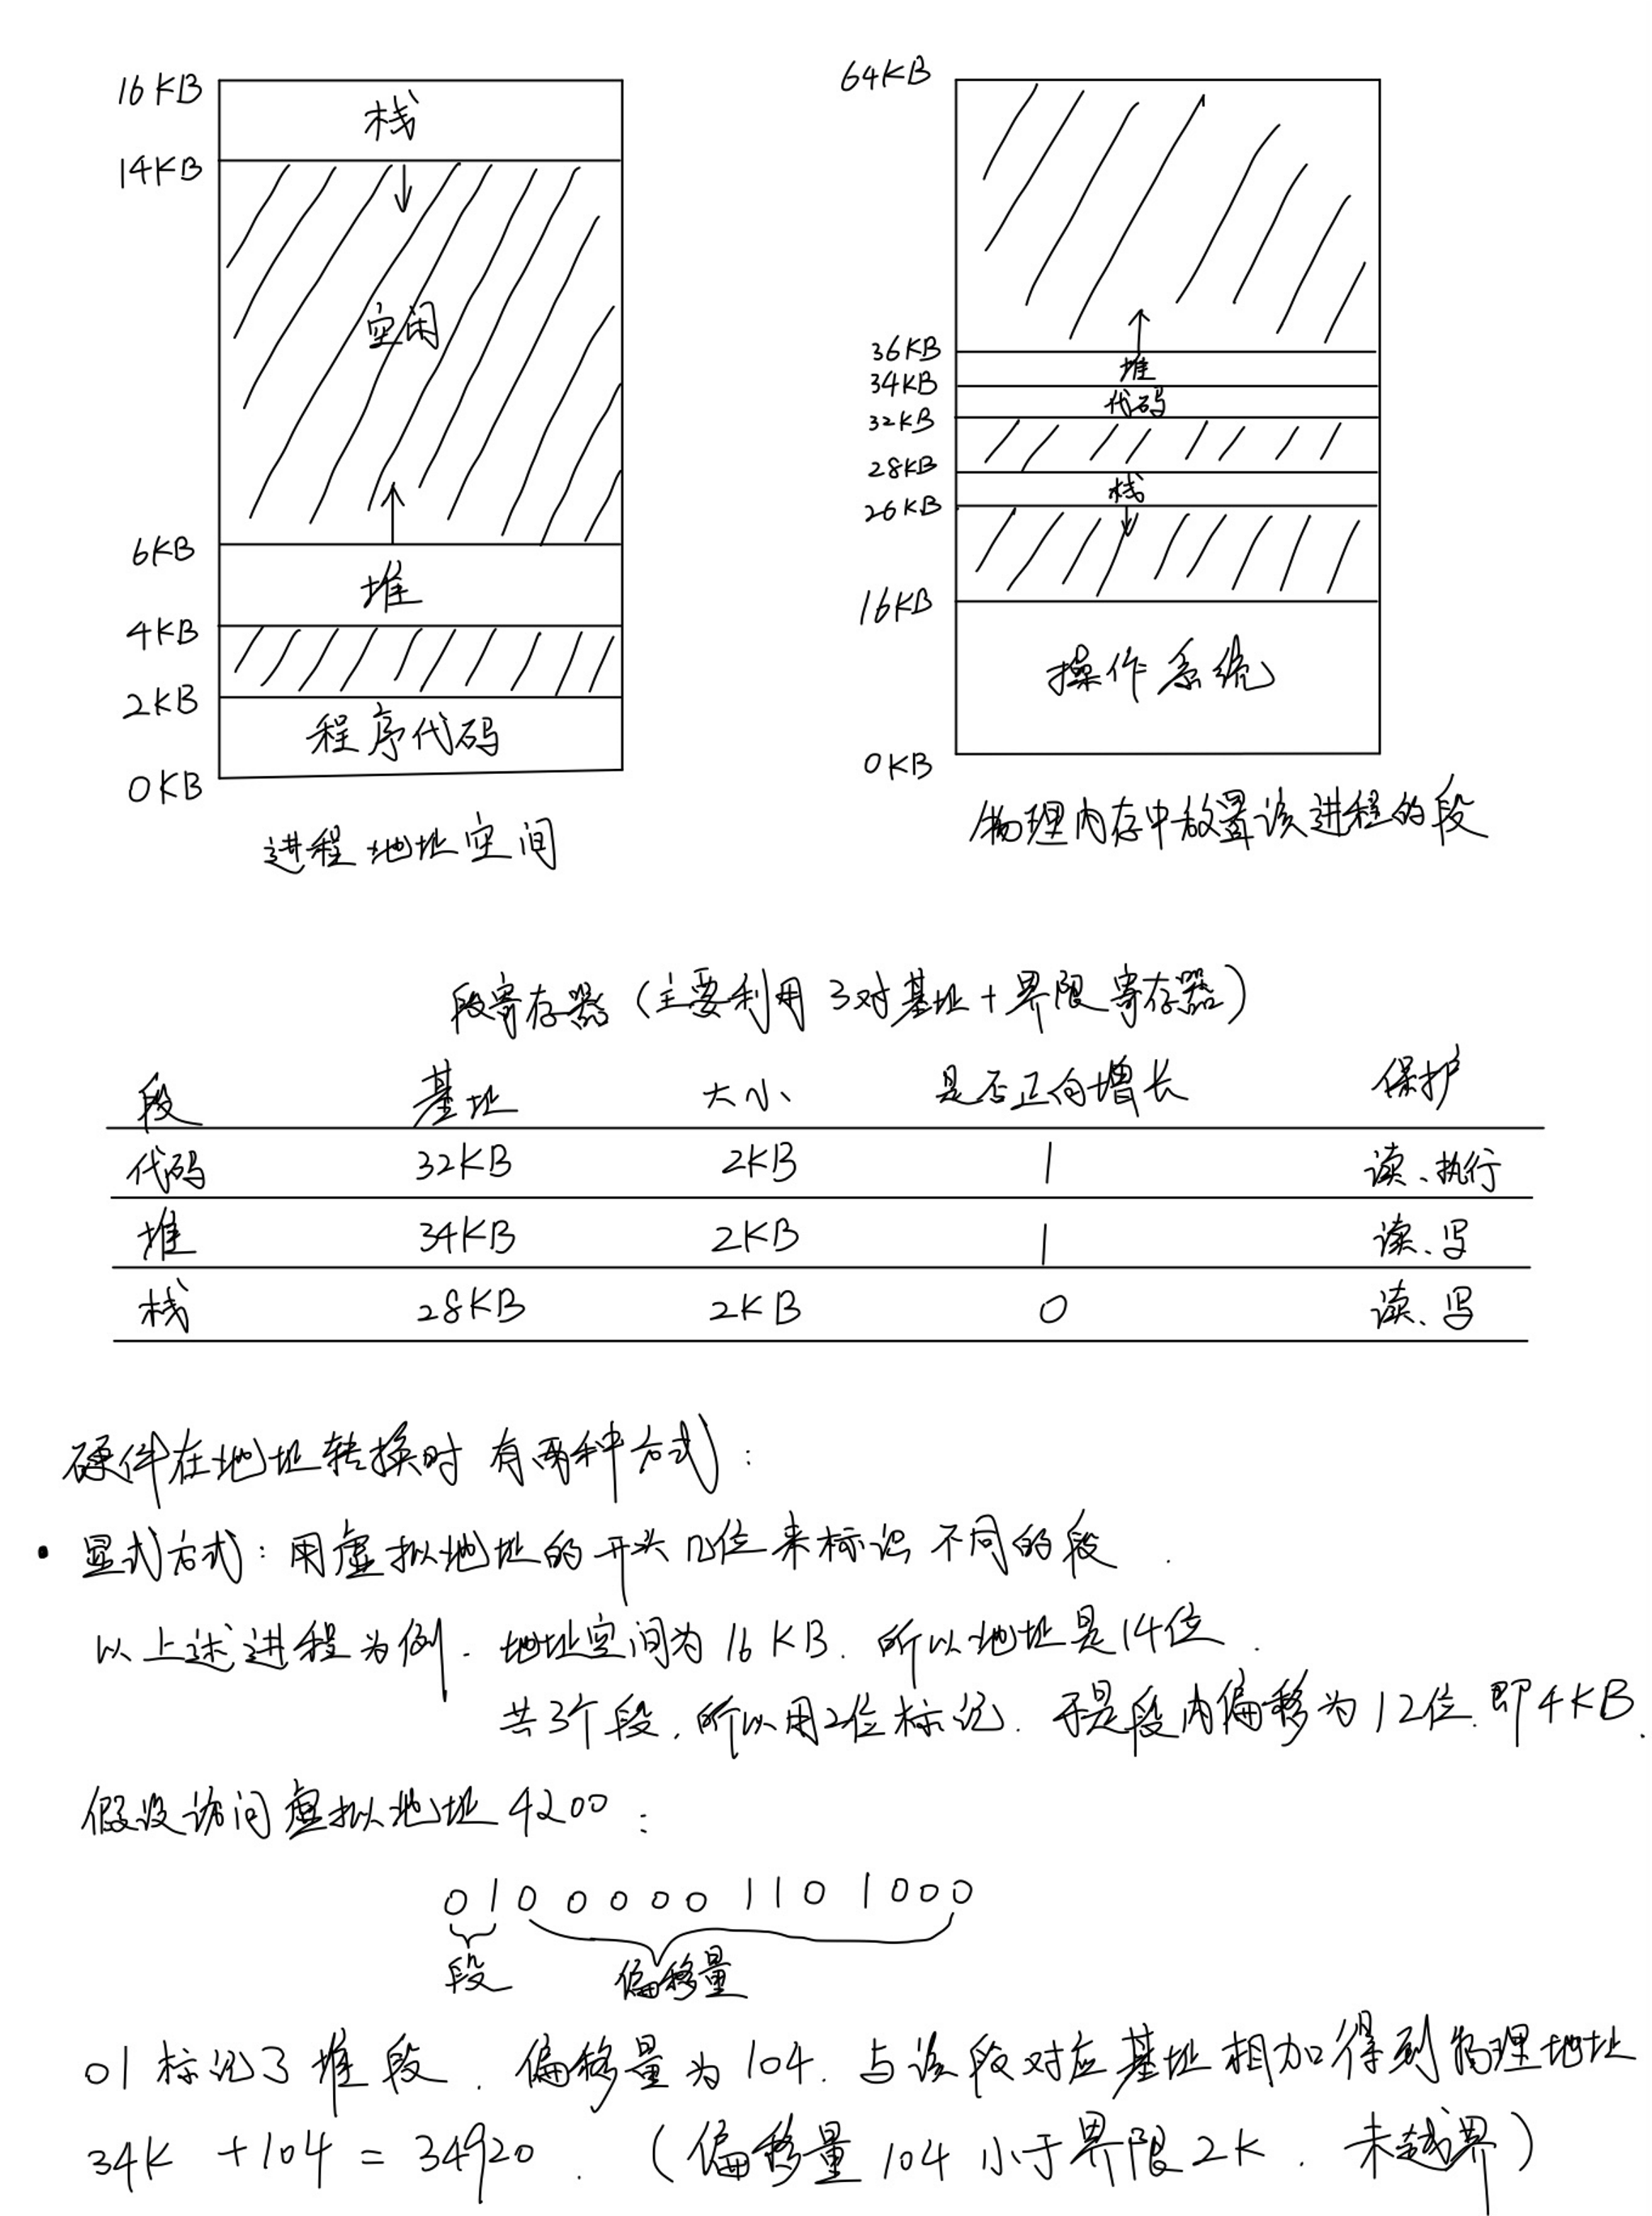 16KB
栈
14KB
空闲
6KB
堆
4KB
2KB
程序代码
0KB
进程地址空间
64KB
36KB
堆
34KB
代码
32KB
28KB
栈
26KB
16KB
操作系统
0KB
物理内存中放置该进程的段
段寄存器(主要利用3对基址+界限寄存器)
段 基址 大小 是否正向增长 保护
代码 32KB 2KB 1 读、执行
堆 34KB 2KB 1 读、写
栈 28KB 2KB 0 读、写
硬件在地址转换时有两种方式:
• 显式方式:用虚拟地址的开头几位来标识不同的段.
以上述进程为例.地址空间为16KB.所以地址是14位.
共3个段,所以用2位标记.于是段内偏移为12位.即4KB.
假设访问虚拟地址4200:
01000001101000
段 偏移量
01标记了堆段.偏移量为104.与该段对应基址相加得到物理地址
34K+104=34920.(偏移量104小于界限2K.未越界)